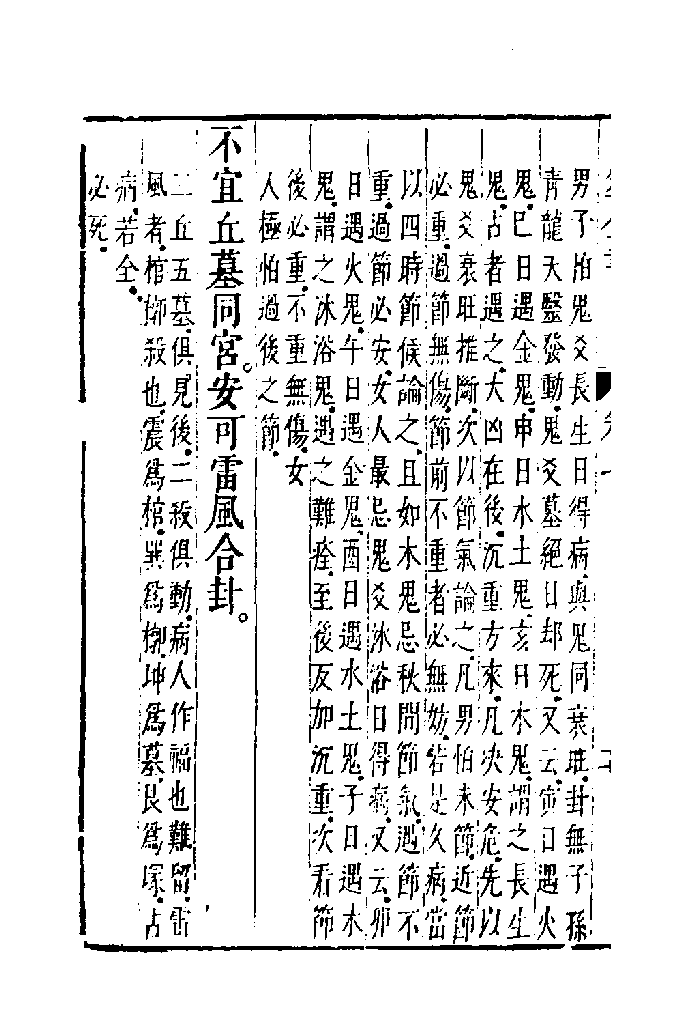 男子怕鬼爻長生日得病與鬼同衰旺卦無子孫
青龍天醫發動鬼爻墓絕日却死又云寅日遇火
鬼巳日遇金鬼申日水土鬼亥日木鬼謂之長生
鬼占者遇之大凶在後沉重方來凡决安危先以
鬼爻衰旺推斷次以節氣論之凡男怕未節近節
必重過節無傷節前不重者必無妨若是久病當
以四時節候論之且如木鬼忌秋間節氣遇節不
重過節必安女人最忌鬼爻沐浴日得病又云卯
日遇火鬼午日遇金鬼酉日遇水土鬼子日遇木
鬼謂之沐浴鬼遇之難痊至後反加沉重次看節
後必重不重無傷女
人極怕過後之節
不宜丘墓同宮。安可雷風合卦。
二丘五墓俱見後二殺俱動病人作福也難留雷
風者棺槨殺也震爲棺巽爲槨坤爲墓艮爲塚占
病若全
必死